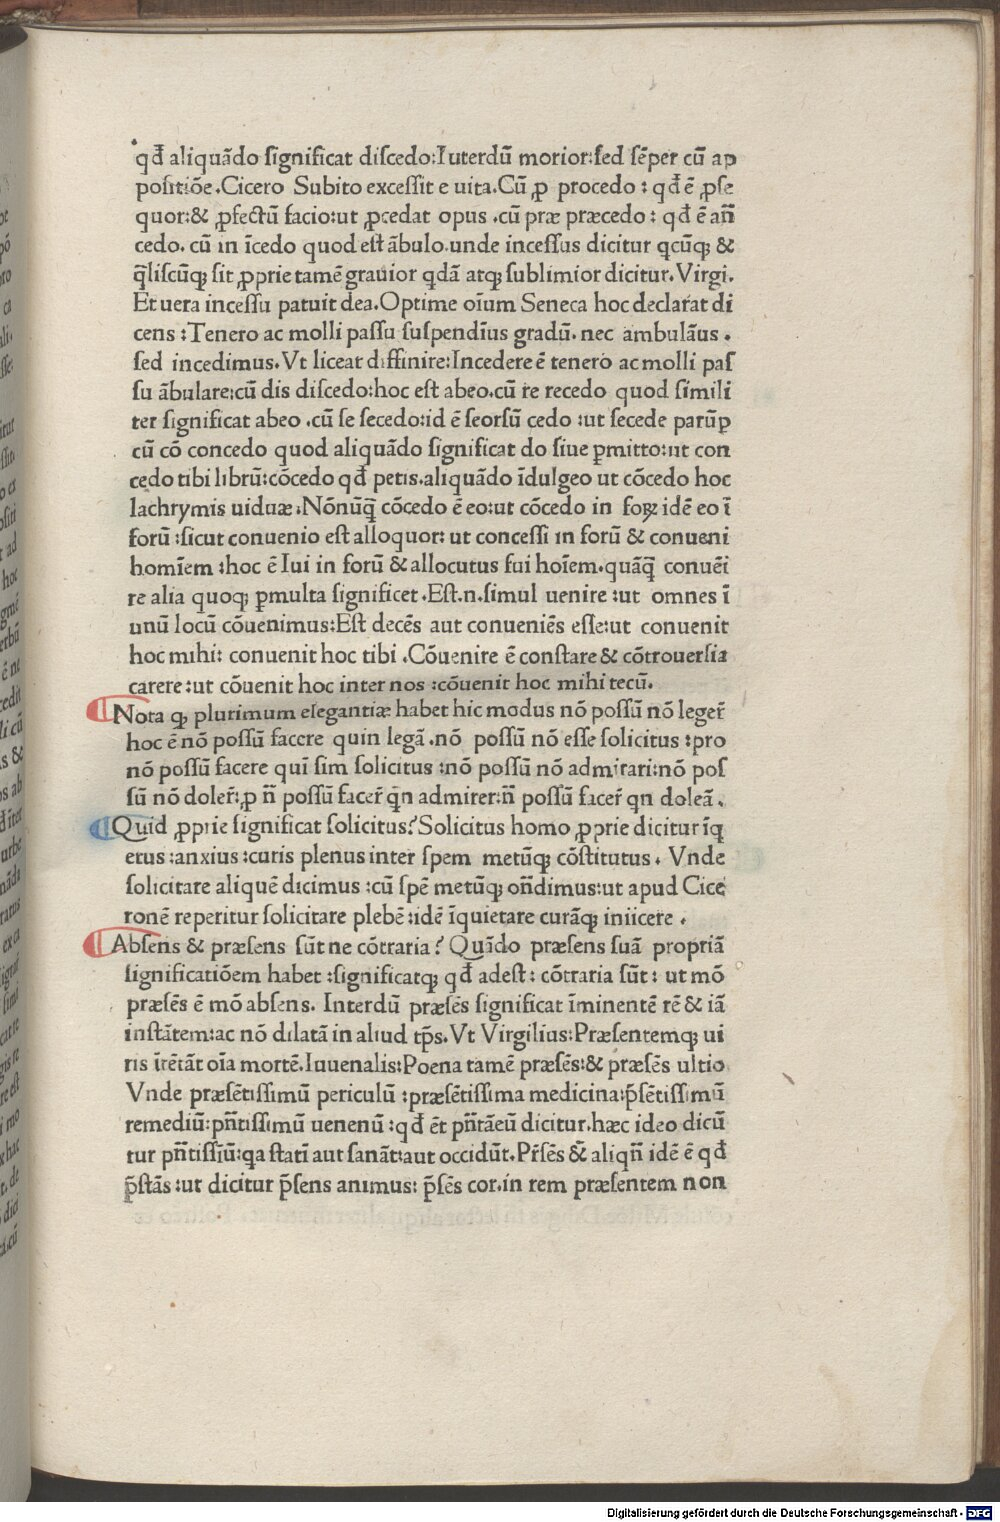 qđ aliquãdo ſignificat diſcedo:Iuterdũ morior:ſed ſẽper cũ ap
poſitiõe.Cicero Subito exceſſit e uita.Cũ ꝓ procedo : qđ ẽ ꝓſe
quor:& ꝓfectũ facio:ut ꝓcedat opus .cũ præ præcedo : qđ ẽ añ
cedo. cũ in ĩcedo quod eſt ãbulo.unde inceſſus dicitur qcũqꝫ &
q̃liſcũqꝫ ſit ꝓprie tamẽ grauior qdã atqꝫ ſublimior dicitur.Virgi.
Et uera inceſſu patuit dea.Optime oĩum Seneca hoc declarat di
cens :Tenero ac molli paſſu ſuſpendĩus gradũ. nec ambulãus .
ſed incedimus.Vt liceat diffinire:Incedere ẽ tenero ac molli paſ
ſu ãbulare:cũ dis diſcedo:hoc eſt abeo.cũ re recedo quod ſimili
ter ſignificat abeo .cũ ſe ſecedo:id ẽ ſeorſũ cedo :ut ſecede parũꝑ
cũ cõ concedo quod aliquãdo ſignificat do ſiue ꝑmitto:ut con
cedo tibi librũ:cõcedo qđ petis.aliquãdo ĩdulgeo ut cõcedo hoc
lachrymis uiduæ .Nõnũq̃ cõcedo ẽ eo:ut cõcedo in foꝝ idẽ eo ĩ
forũ :ſicut conuenio eſt alloquor: ut conceſſi in forũ & conueni
homĩem :hoc ẽ Iui in forũ & allocutus fui hoĩem.quãq̃ conuẽi
re alia quoqꝫ ꝑmulta ſignificet .Eſt.n.ſimul uenire :ut omnes ĩ
unũ locũ cõuenimus:Eſt decẽs aut conueniẽs eſſe:ut conuenit
hoc mihi: conuenit hoc tibi .Cõuenire ẽ conſtare & cõtrouerſia
carere:ut cõuenit hoc inter nos :cõuenit hoc mihi tecũ.
Nota qꝫ plurimum elegantiæ habet hic modus nõ poſſũ nõ leger̃
hoc ẽ nõ poſſũ facere quin legã .nõ poſſũ nõ eſſe ſolicitus :pro
nõ poſſũ facere quĩ ſim ſolicitus :nõ poſſũ nõ admirari:nõ poſ
ſũ nõ doler̃:ꝓ ñ poſſũ facer̃ q̃n admirer:ñ poſſũ facer̃ qn doleã .
Quid ꝓprie ſignificat ſolicitus? Solicitus homo ꝓprie dicitur ĩq
etus :anxius :curis plenus inter ſpem metũqꝫ cõſtitutus . Vnde
ſolicitare aliquẽ dicimus :cũ ſpẽ metũqꝫ oñdimus:ut apud Cice
ronẽ reperitur ſolicitare plebẽ :idẽ ĩquietare curãqꝫ iniicere .
Abſens & præſens ſũt ne cõtraria? Quãdo præſens ſuã propriã
ſignificatiõem habet :ſignificatqꝫ qđ adeſt : cõtraria ſũt : ut mõ
præſẽs ẽ mõ abſens. Interdũ præſẽs ſignificat ĩminentẽ rẽ & iã
inſtãtem:ac nõ dilatã in aliud tp̃s. Vt Virgilius:Præſentemqꝫ ui
ris ĩtẽtãt oĩa mortẽ.Iuuenalis:Poena tamẽ præſẽs:& præſẽs ultio
Vnde præſẽtiſſimũ periculũ :præſẽtiſſima medicina:p̃ſẽtiſſimũ
remediũ:pñtiſſimũ uenenũ :qđ ẽt pñtãeũ dicitur.hæc ideo dicũ
tur pñtiſſiũ:qa ſtatĩ aut ſanãt:aut occidũt.Pr̃ſẽs & aliqñ idẽ ẽ qđ
p̃ſtãs :ut dicitur p̃ſens animus: p̃ſẽs cor.in rem præſentem non
Digitalisierung gefördert durch die Deutsche Forschungsgemeinschaft - DFG